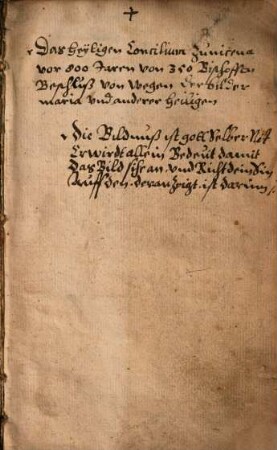 +
Das heyligen Concilium Zu nicena
vor 800 Jaren von 350 Bischoffen
Beschluß von wegen der bilder
maria vnd anderer heiligen
Die Bildnuß ist gott selber Nit
Er wirdt allein Bedeut damit
Das Bild sihe an vnd Richt dein Sin
Auff den der anzeigt ist darin